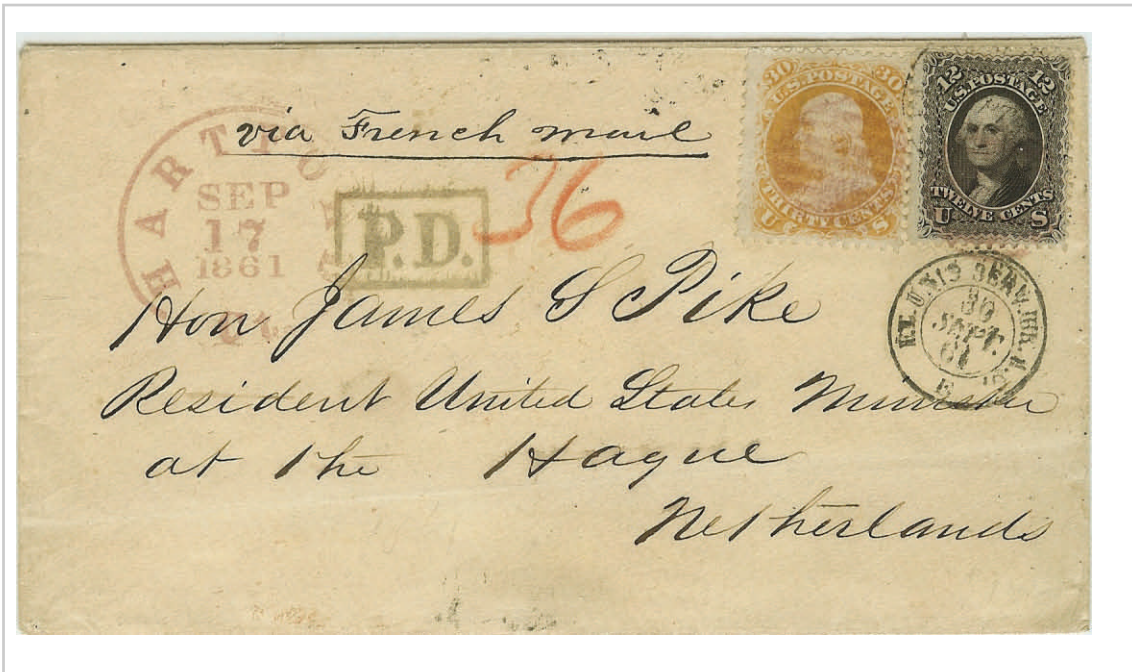 via French mail
HARTFO
SEP
17
1861
P.D.
36
30 U.S. POSTAGE 30
THIRTY CENTS
U S
12 12
U.S. POSTAGE
TWELVE CENTS
U S
30
SEPT.
61
Hon James S Pike
Resident United States Minister
at the Hague
Netherlands